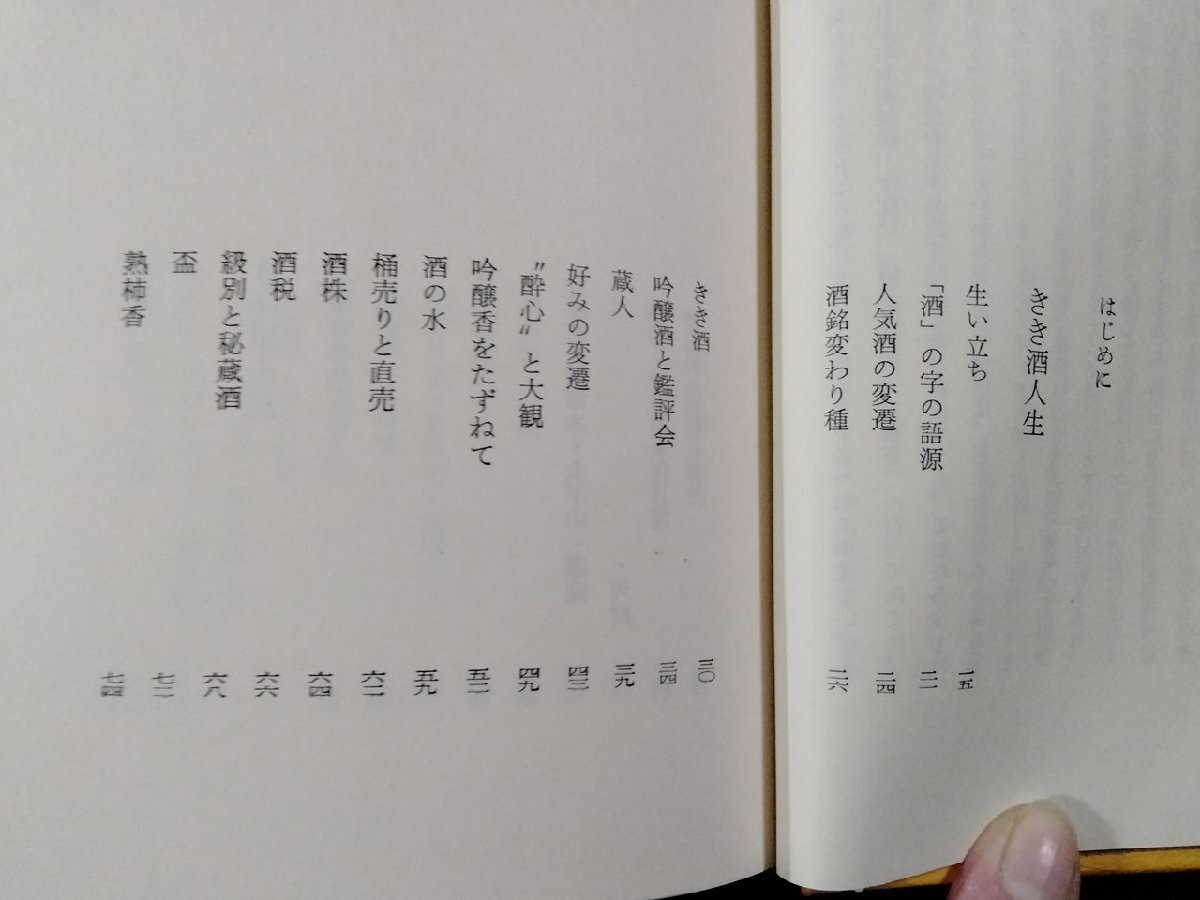 はじめに
きき酒人生
生い立ち 一五
「酒」の字の語源 二一
人気酒の変遷 二四
酒銘変わり種 二六
きき酒 三〇
吟醸酒と鑑評会 三四
蔵人 三九
好みの変遷 四三
〝酔心〟と大観 四九
吟醸香をたずねて 五二
酒の水 五九
桶売りと直売 六二
酒株 六四
酒税 六六
級別と秘蔵酒 六八
盃 七二
熟柿香 七四